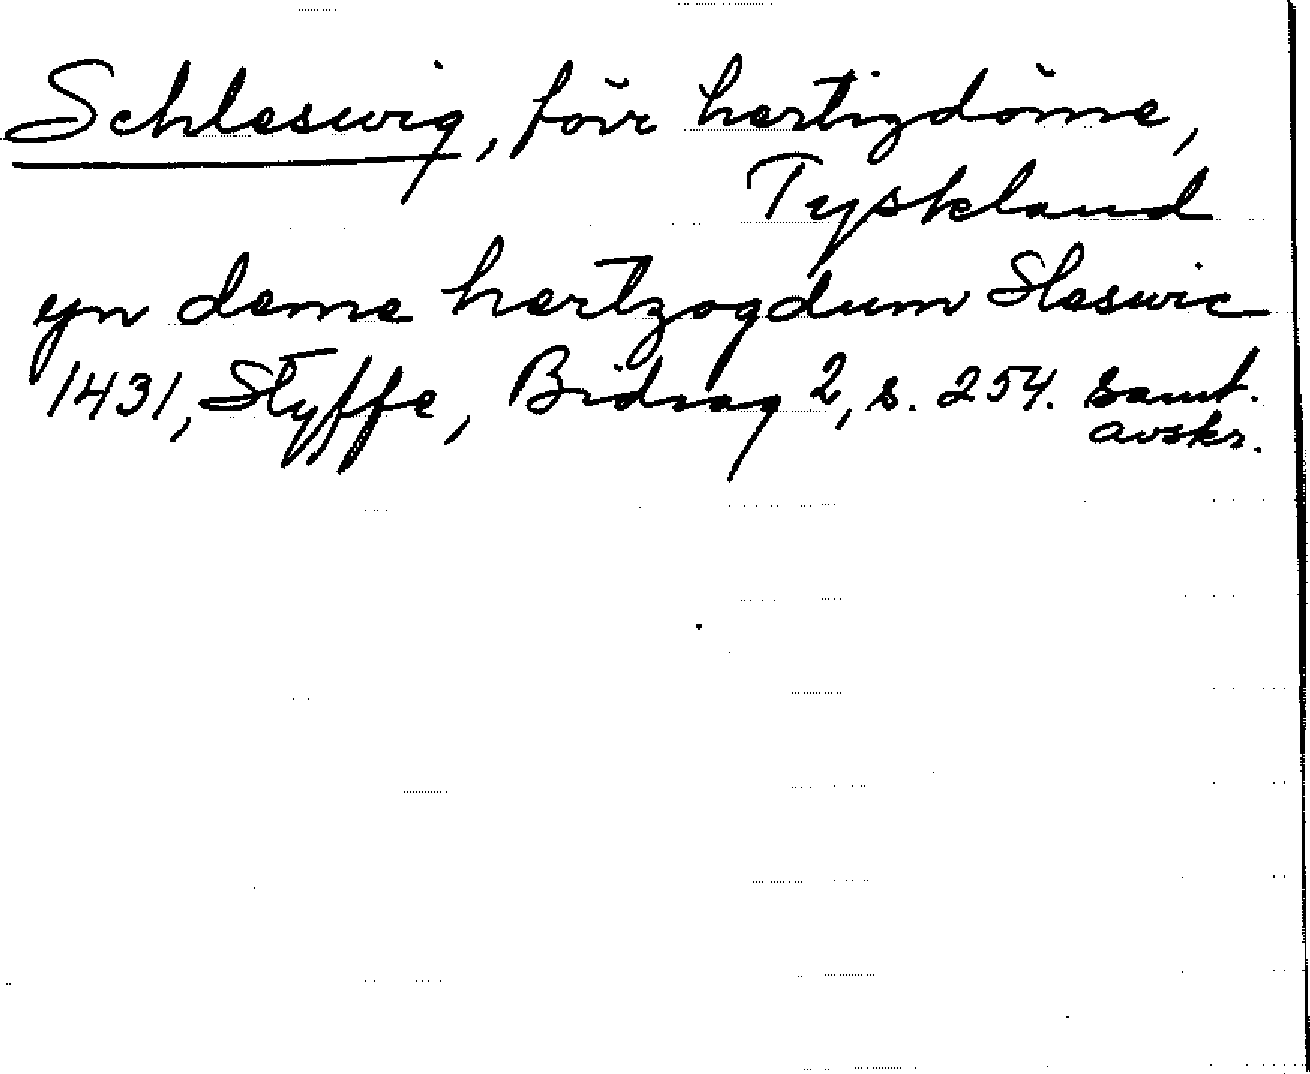 Schleswig, förr hertigdöme,
Tyskland
yn deme hertzogdum Sleswic
1431, Styffe, Bidrag 2, s. 254. samt.
avskr.